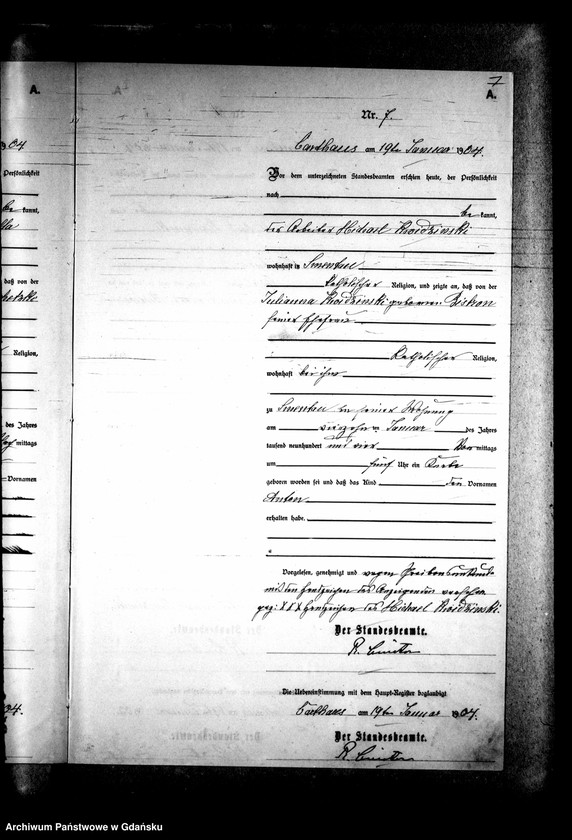 7
A.
A.
Nr. 7.
04
Carthaus am 19ten Januar 1904.
Persönlichkeit
Vor dem unterzeichneten Standesbeamten erschien heute, der Persönlichkeit
nach
be kannt,
be kannt,
der Arbeiter Michael
wohnhaft in
daß von der
Katholischer Religion, und zeigte an, daß von der
Julianna geborenen
seiner Ehefrau
Religion,
Katholischer Religion,
wohnhaft bei ihm
zu in seiner Wohnung
des Jahres
am vierzehnten Januar des Jahres
mittags
tausend neunhundert und vier Vor mittags
um fünf Uhr ein Knabe
Vornamen
geboren worden sei und daß das Kind den Vornamen
Anton
erhalten habe.
Vorgelesen, genehmigt und wegen Schreibensunkunde
mit den Handzeichen des Anzeigenden versehen
gez: XXX Handzeichen des Michael
Der Standesbeamte.
R.
Die Uebereinstimmung mit dem Haupt-Register beglaubigt
04.
Carthaus am 19ten Januar 1904.
Der Standesbeamte.
R.
Archiwum Państwowe w Gdańsku